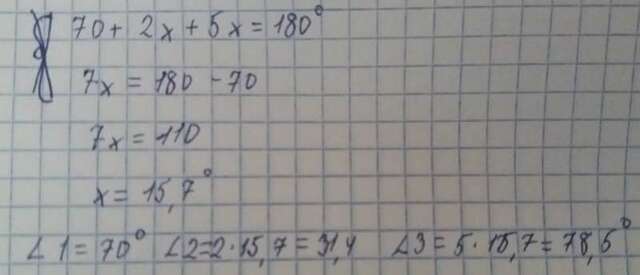 70 + 2x + 5x = 180°
7x = 180 - 70
7x = 110
x = 15,7°
∠1 = 70° ∠2=2·15,7 = 31,4 ∠3 = 5·15,7 = 78,5°